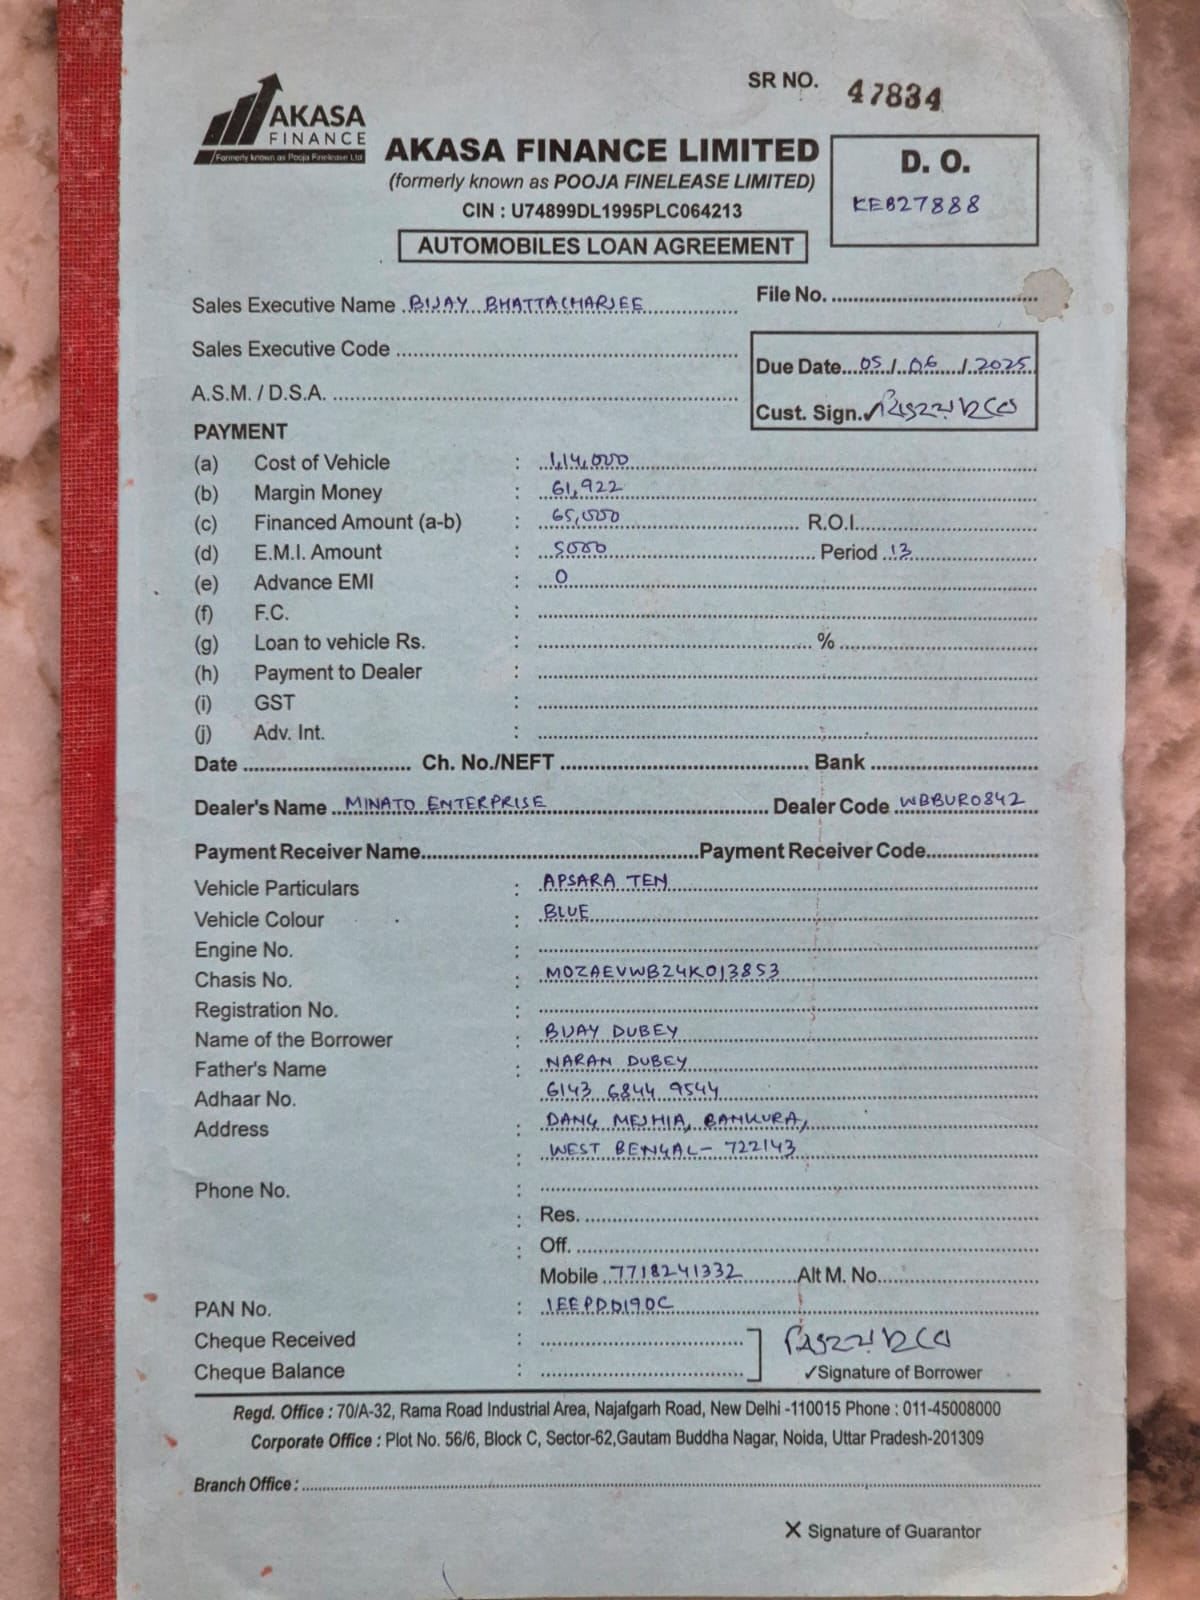 SR NO. 47834
AKASA
FINANCE
Formerly known as Pooja Finelease Ltd
AKASA FINANCE LIMITED
(formerly known as POOJA FINELEASE LIMITED)
CIN : U74899DL1995PLC064213
AUTOMOBILES LOAN AGREEMENT
D. O.
KEB27888
Sales Executive Name BIJAY BHATTACHARJEE
File No.
Sales Executive Code
Due Date 05/06/2025
A.S.M. / D.S.A.
Cust. Sign.✓
PAYMENT
(a) Cost of Vehicle : 1,14,000
(b) Margin Money : 61,922
(c) Financed Amount (a-b) : 65,000 R.O.I.
(d) E.M.I. Amount : 5000 Period 13
(e) Advance EMI : 0
(f) F.C. :
(g) Loan to vehicle Rs. : %
(h) Payment to Dealer :
(i) GST :
(j) Adv. Int. :
Date Ch. No./NEFT Bank
Dealer's Name MINATO ENTERPRISE Dealer Code WBBUR0842
Payment Receiver Name Payment Receiver Code
Vehicle Particulars : APSARA TEN
Vehicle Colour : BLUE
Engine No. :
Chasis No. : MOZAEVWB24K013853
Registration No. :
Name of the Borrower : BIJAY DUBEY
Father's Name : NARAN DUBEY
Adhaar No. 6143 6844 9544
Address : DANG MEJHIA, BANKURA,
: WEST BENGAL- 722143
Phone No. :
: Res.
: Off.
Mobile 7718241332 Alt M. No.
PAN No. : IEEPD0190C
Cheque Received :
Cheque Balance : ✓Signature of Borrower
Regd. Office : 70/A-32, Rama Road Industrial Area, Najafgarh Road, New Delhi -110015 Phone : 011-45008000
Corporate Office : Plot No. 56/6, Block C, Sector-62,Gautam Buddha Nagar, Noida, Uttar Pradesh-201309
Branch Office :
X Signature of Guarantor